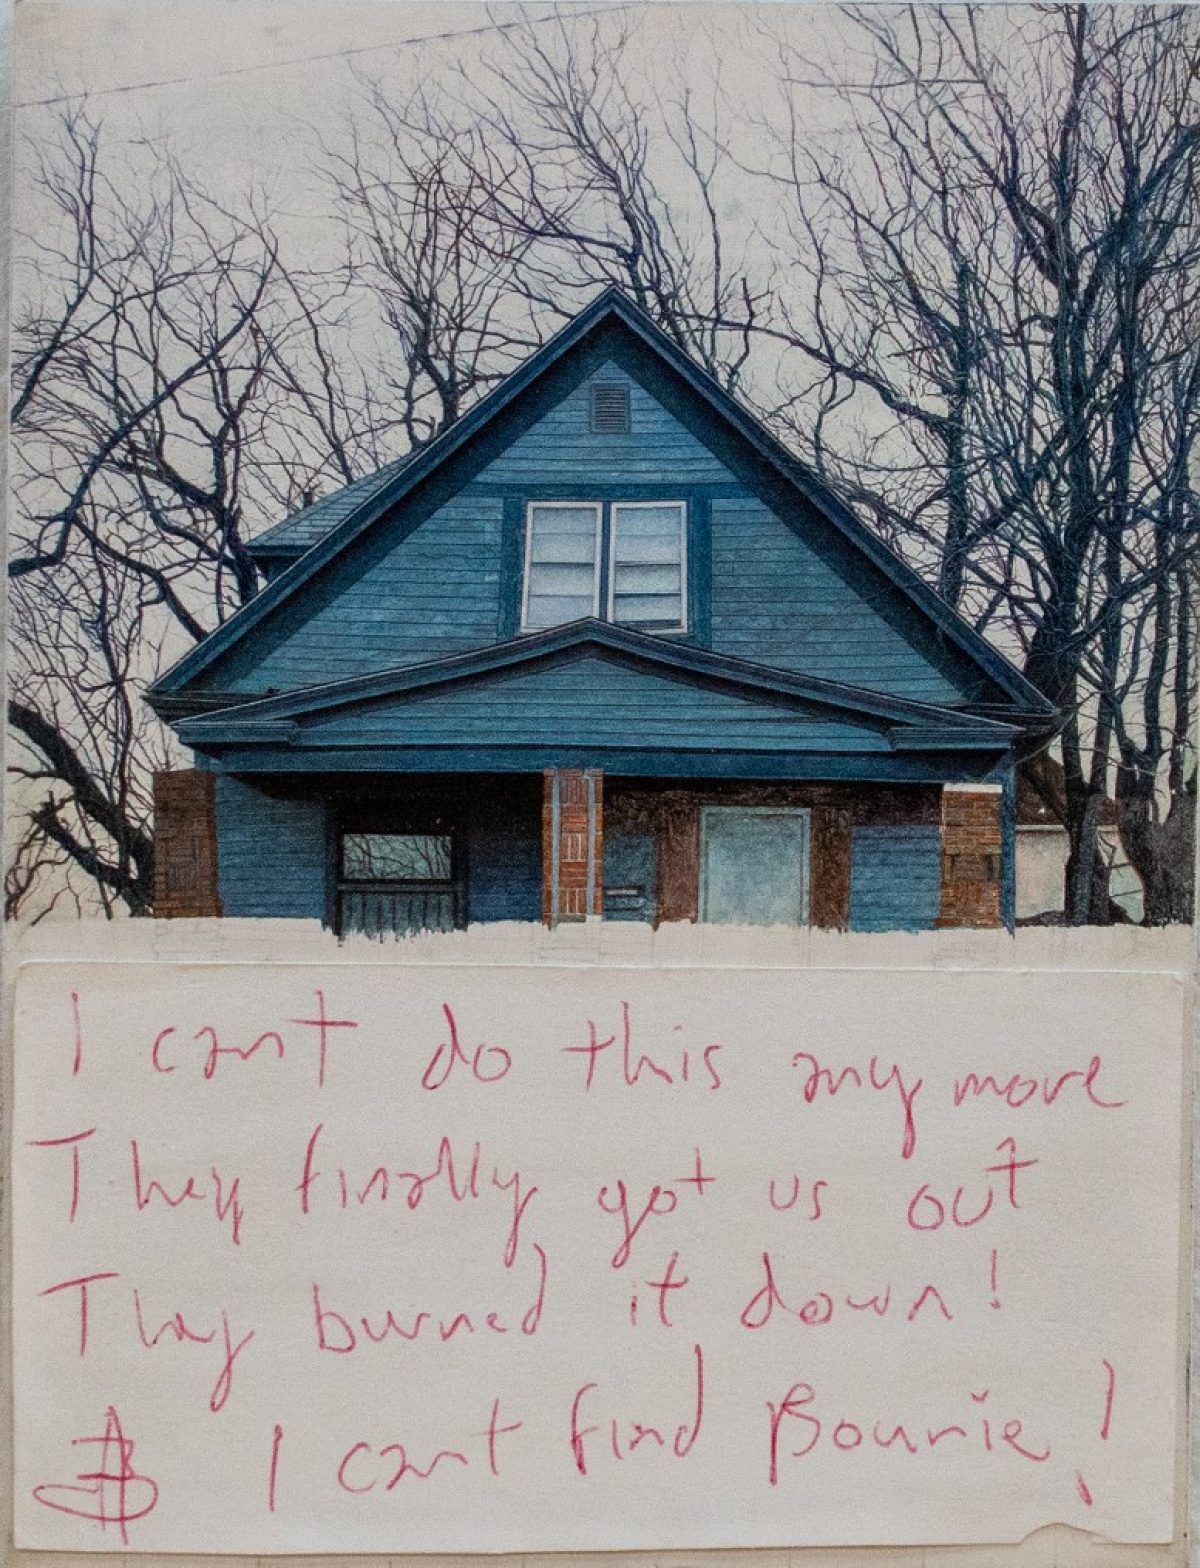 I cant do this anymore
They finally got us out
They burned it down!
I cant find Bonnie!